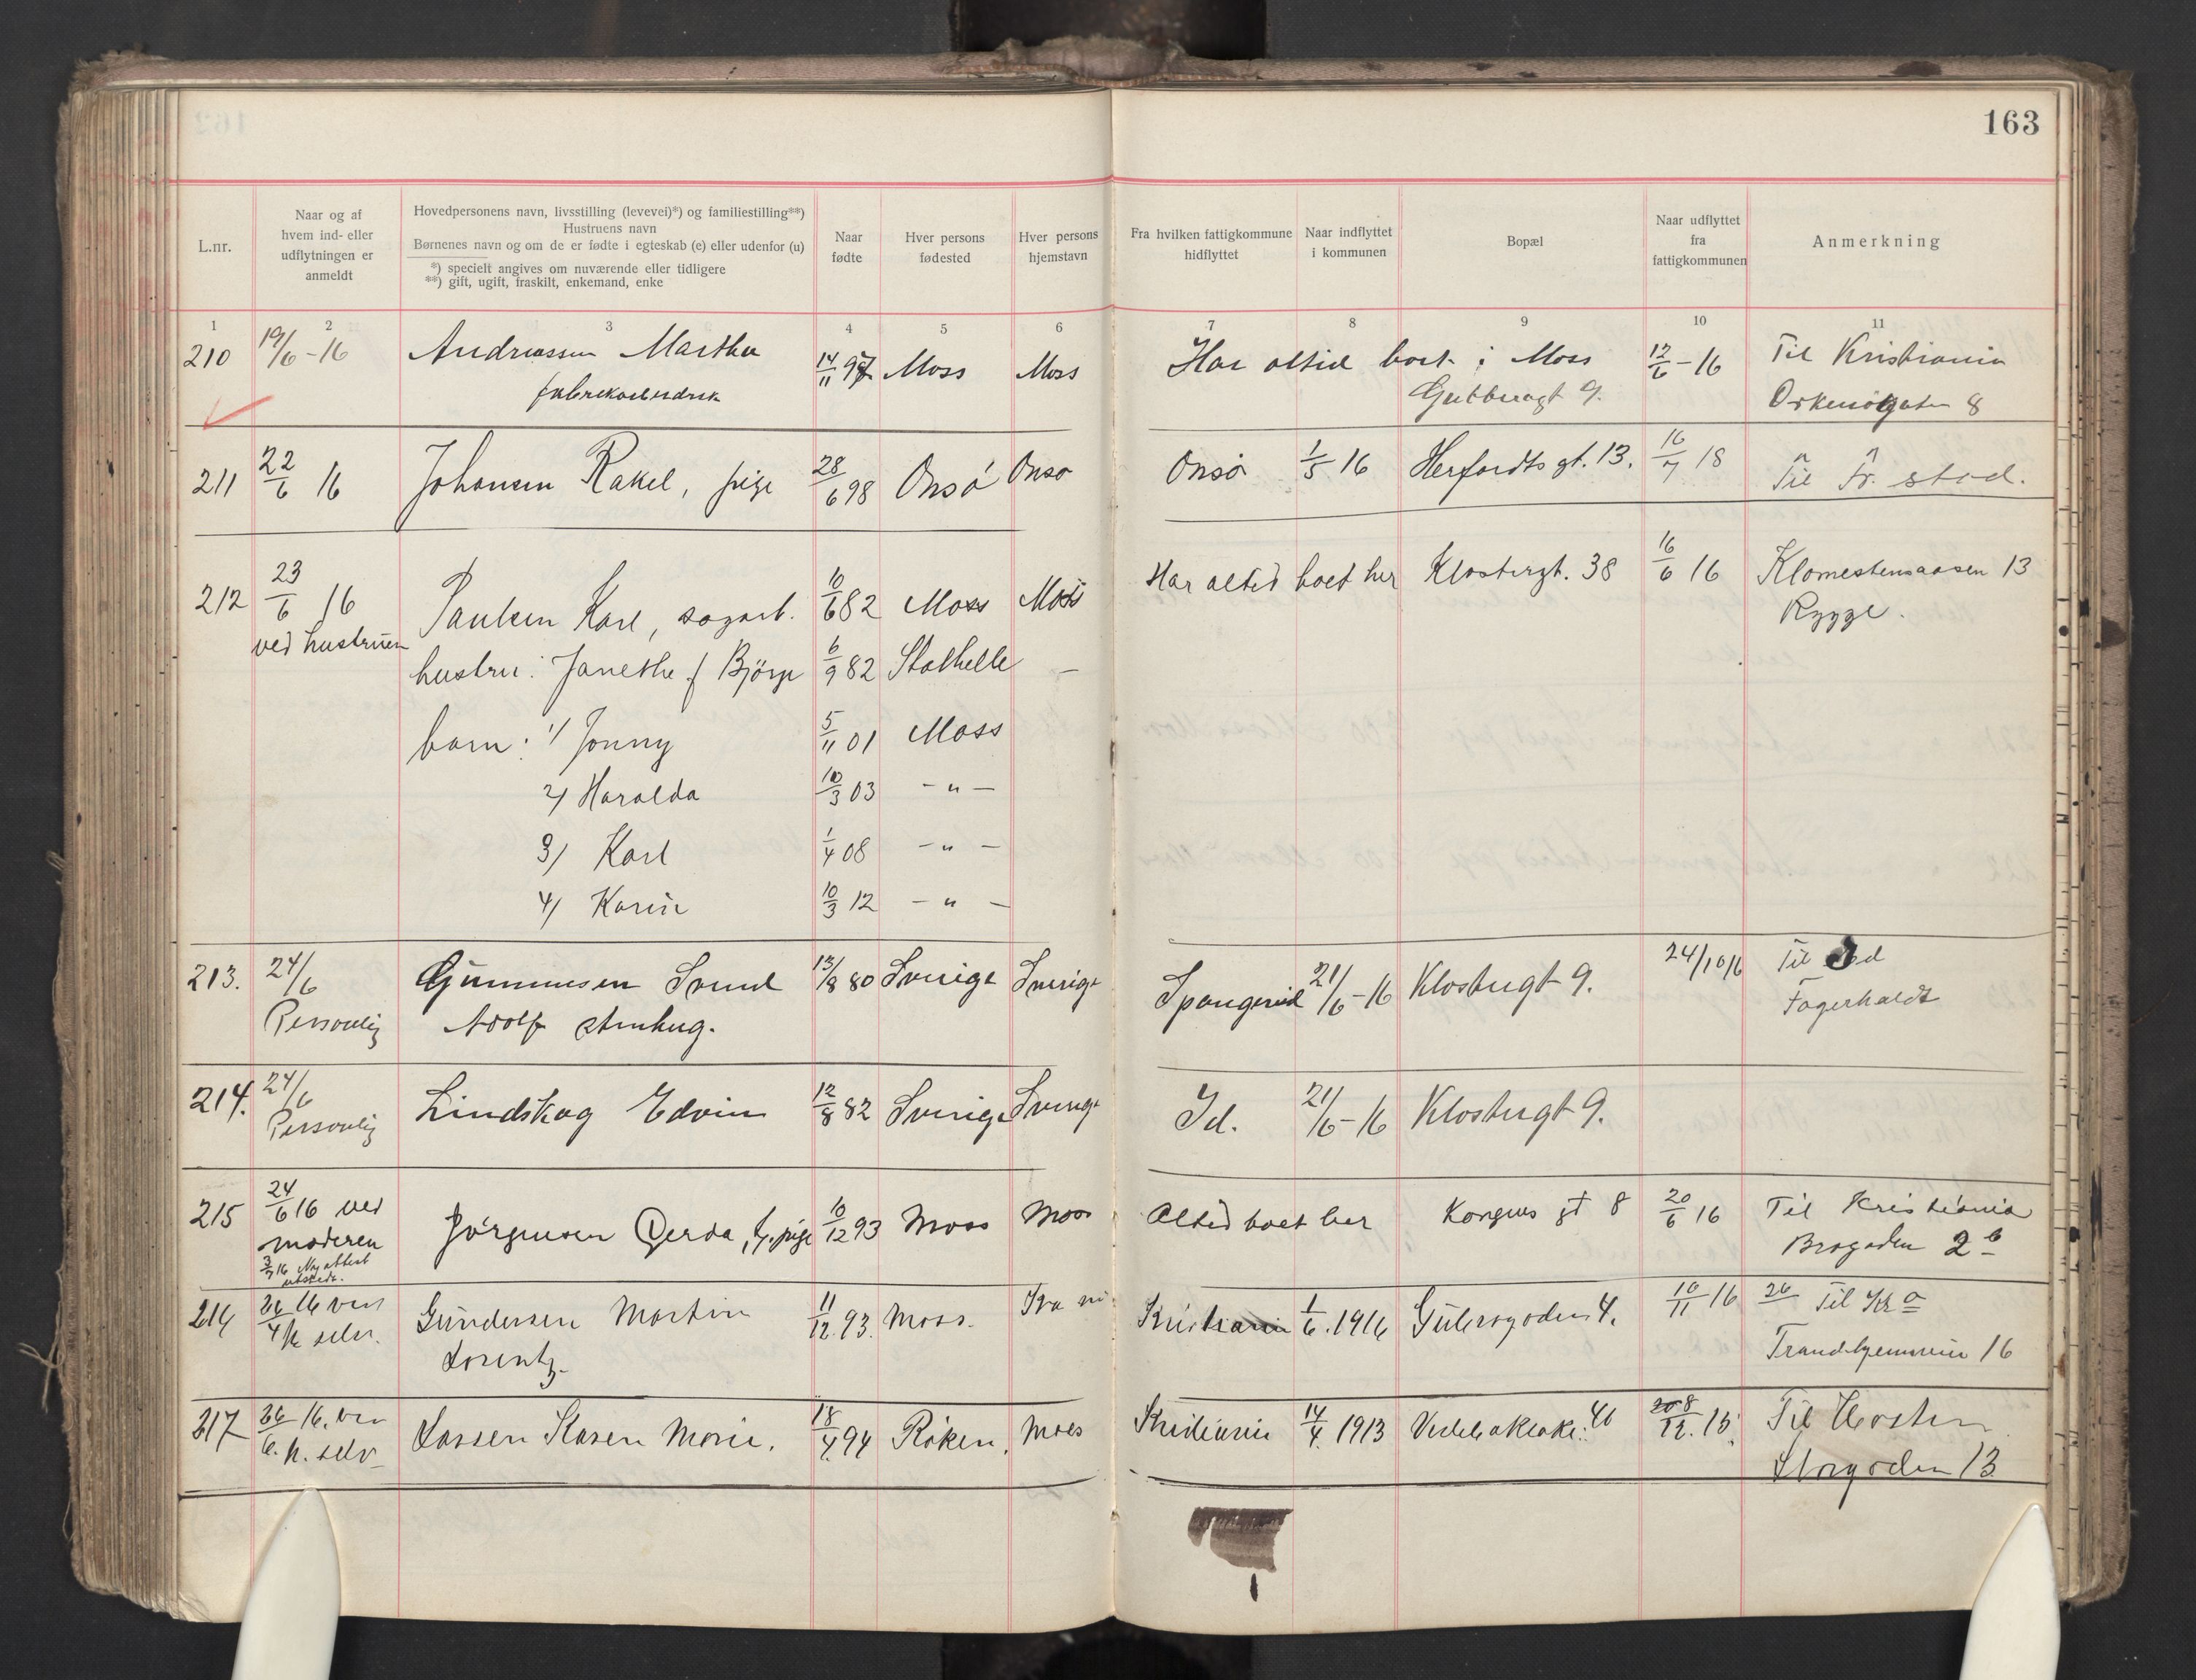 163
L.nr.
Naar og af
hvem ind- eller
udflytningen er
anmeldt
Hovedpersonens navn, livsstilling (levevei)*) og familiestilling**)
Hustruens navn
Børnenes navn og om de er fødte i egteskab (e) eller udenfor (u)
*) specielt angives om nuværende eller tidligere
**) gift, ugift, fraskilt, enkemand, enke
Naar
fødte
Hver persons
fødested
Hver persons
hjemstavn
Fra hvilken fattigkommune
hidflyttet
Naar indflyttet
i kommunen
Bopæl
Naar udflyttet
fra
fattigkommunen
Anmerkning
1 2 3 4 5 6 7 8 9 10 11
210 19/6-16 Andreassen Martha 14/11 97 Moss Moss Har altid boet i Moss 12/6-16 Til Kristiania
8
211 22/6 16 Johansen Rakel, pige 28/6 98 Onsö Onsö Onsö 1/5 16 Herfordts gt. 13. 16/7 18 Til Fr. stad.
212 23/6 16 Paulsen Karl, sagarb. 10/6 82 Moss Moss Har altid boet her Klostergt. 38 16/6 16 Klomestensaasen 13
ved hustruen Rygge.
hustru: Janethe f Björge 6/9 82 Stathelle —
barn: 1/ Jonny 5/11 01 Moss
2/ Haralda 10/3 03 - " -
3/ Karl 1/4 08 - " -
4/ Karin 10/3 12 - " -
213. 24/6 Svend 13/8 80 Sverige Sverige 21/6-16 Klostergt 9. 24/10 16 Til
Personlig Adolf Fagerholdt
214. 24/6 Lindskog Edvin 12/8 82 Sverige Sverige Id. 21/6-16 Klostergt 9.
Personlig
215 24/6 16 ved Jörgensen Gerda, 10/12 93 Moss Moss Altid boet her Kongens gt 8 20/6 16 Til Kristiania
moderen Brogaden 2 b
3/7 16 Ny attest
utstedt.
216 Gundersen Martin 11/12. 93. Moss. Kristiania 1/6. 1916 4. 10/11-16 Til Kr a
selv. Lorentz. 16
217 Lassen Karen Marie. 18/4. 94 Röken. Moss Kristiania 14/4. 1913 Til
selv Storgaden 13